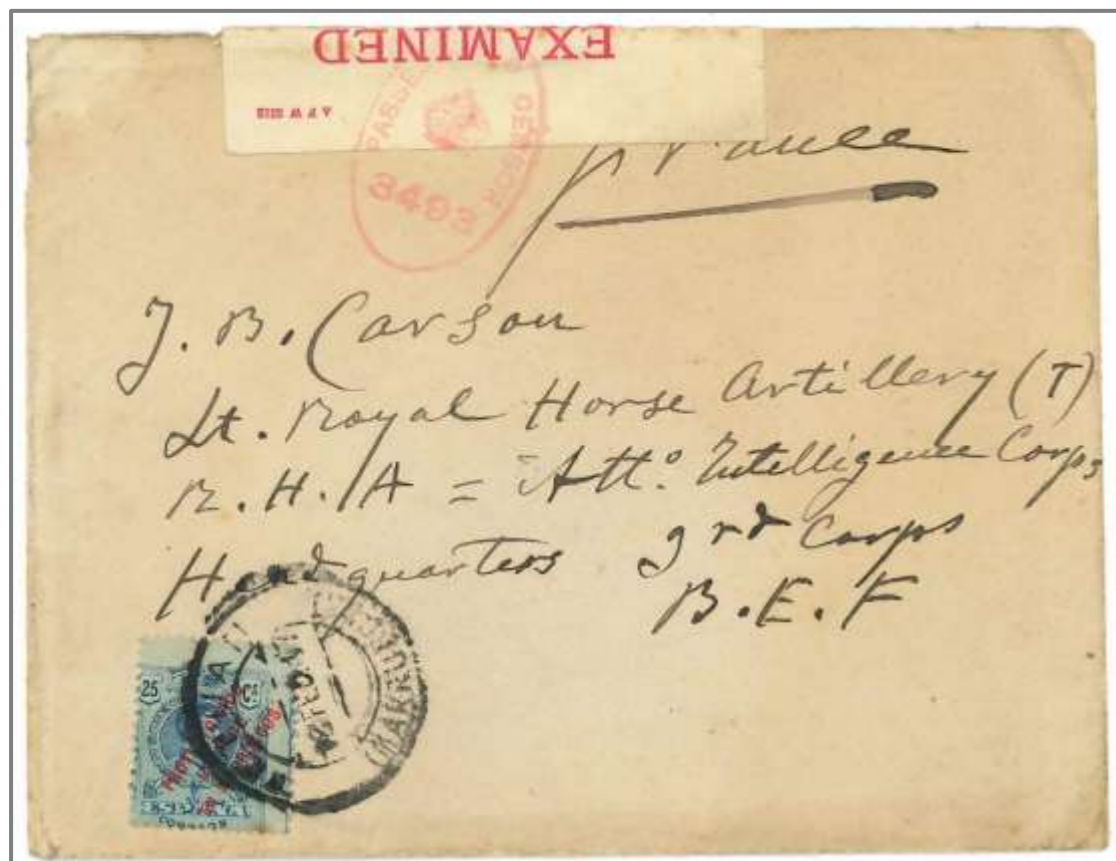 EXAMINED
A F W
PASSED
CENSOR
3493
France
J. B. Carson
Lt. Royal Horse Artillery (T)
R. H. A = Att⁰. Intelligence Corps
Headquarters 3rd Corps
B. E. F
25 Cs
(MARRUECOS)